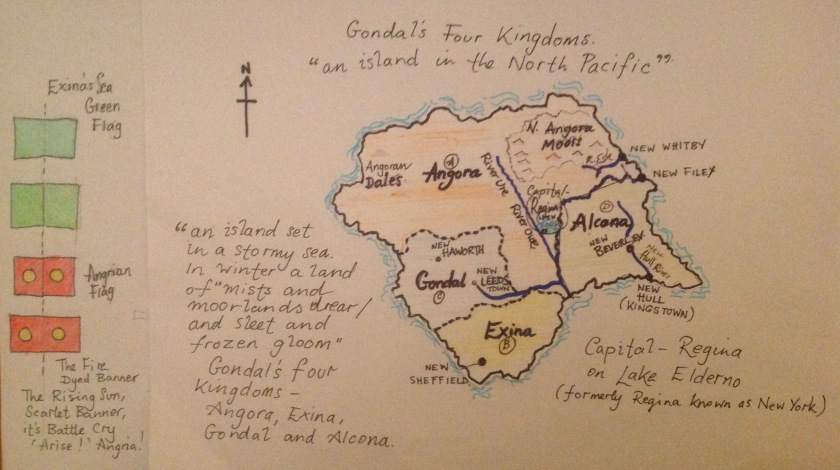 Gondal's Four Kingdoms.
"an island in the North Pacific".
Exina's Sea
Green
Flag
Angrian
Flag
The Fire
Dyed Banner
The Rising Sun,
Scarlet Banner,
it's Battle Cry
'Arise!' Angria!
N
"an island set
in a stormy sea.
In winter a land
of "mists and
moorlands drear/
and sleet and
frozen gloom"
Gondal's four
Kingdoms -
Angora, Exina,
Gondal and Alcona.
N. Angora
Moors
R. Esk
NEW WHITBY
NEW FILEY
Angoran
Dales
Angora
A
River Ure
River Ouse
Capital-
Regina
Alcona
D
NEW
BEVERLEY
New
Hull River
NEW
HULL
(KINGSTOWN)
NEW
HAWORTH
Gondal
C
NEW
LEEDS
TOWN
Exina
B
NEW
SHEFFIELD
Capital - Regina
on Lake Elderno
(formerly Regina known as New York)